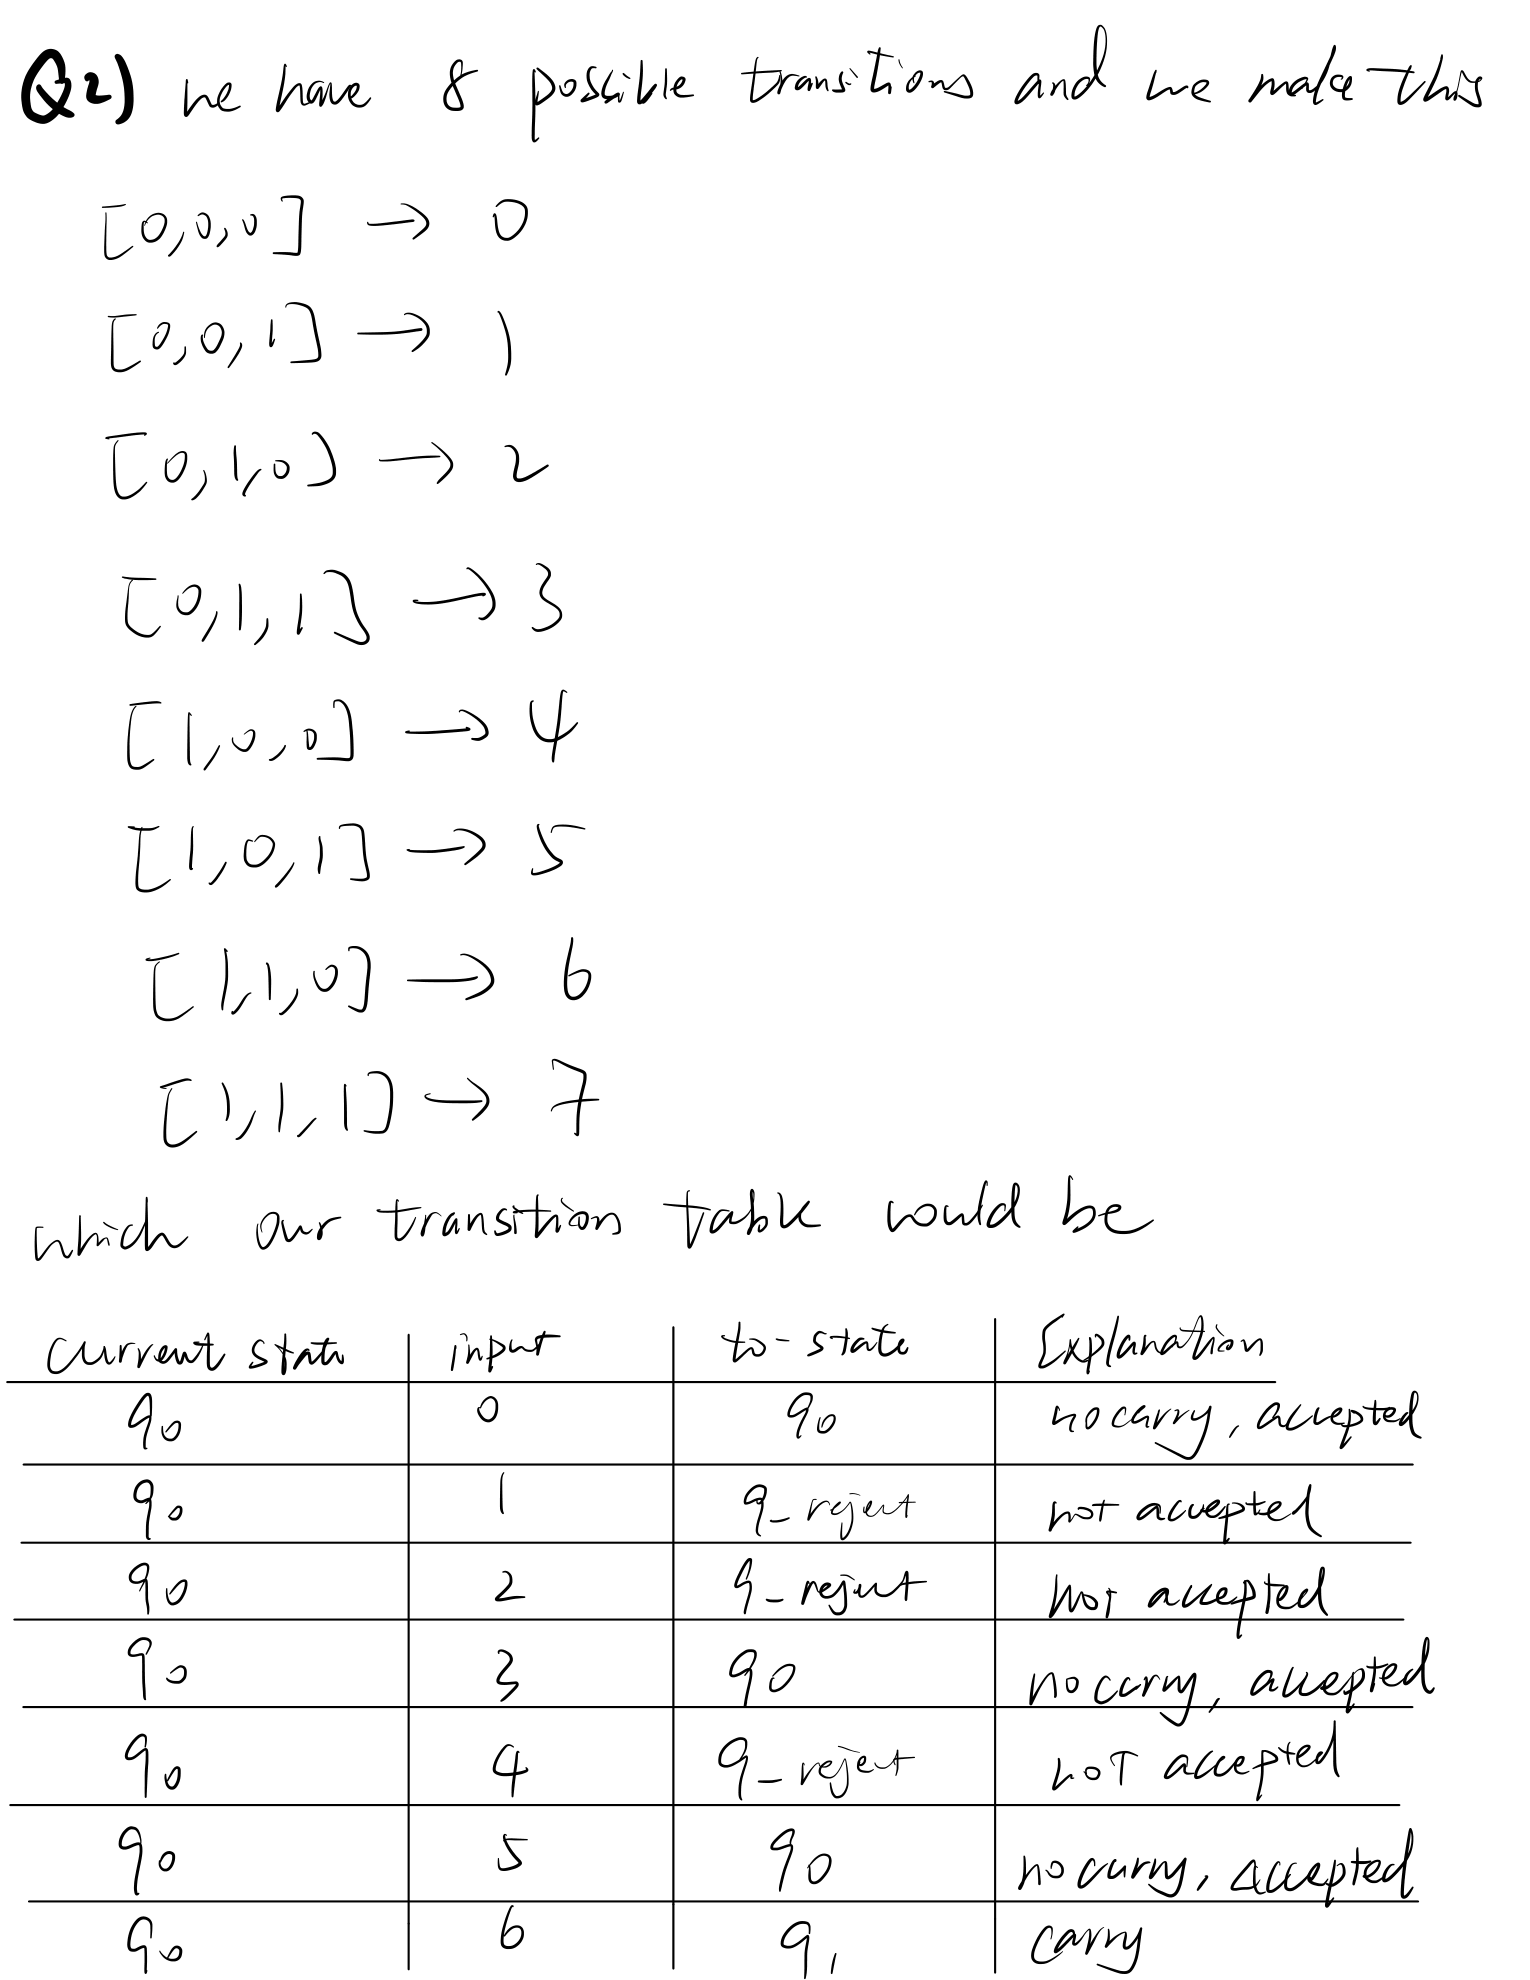 Q2) we have 8 possible transitions and we make this
[0,0,0] → 0
[0,0,1] → 1
[0,1,0] → 2
[0,1,1] → 3
[1,0,0] → 4
[1,0,1] → 5
[1,1,0] → 6
[1,1,1] → 7
which our transition table would be
current state | input | to-state | Explanation
q0 | 0 | q0 | no carry, accepted
q0 | 1 | q_reject | not accepted
q0 | 2 | q_reject | not accepted
q0 | 3 | q0 | no carry, accepted
q0 | 4 | q_reject | not accepted
q0 | 5 | q0 | no carry, accepted
q0 | 6 | q1 | carry